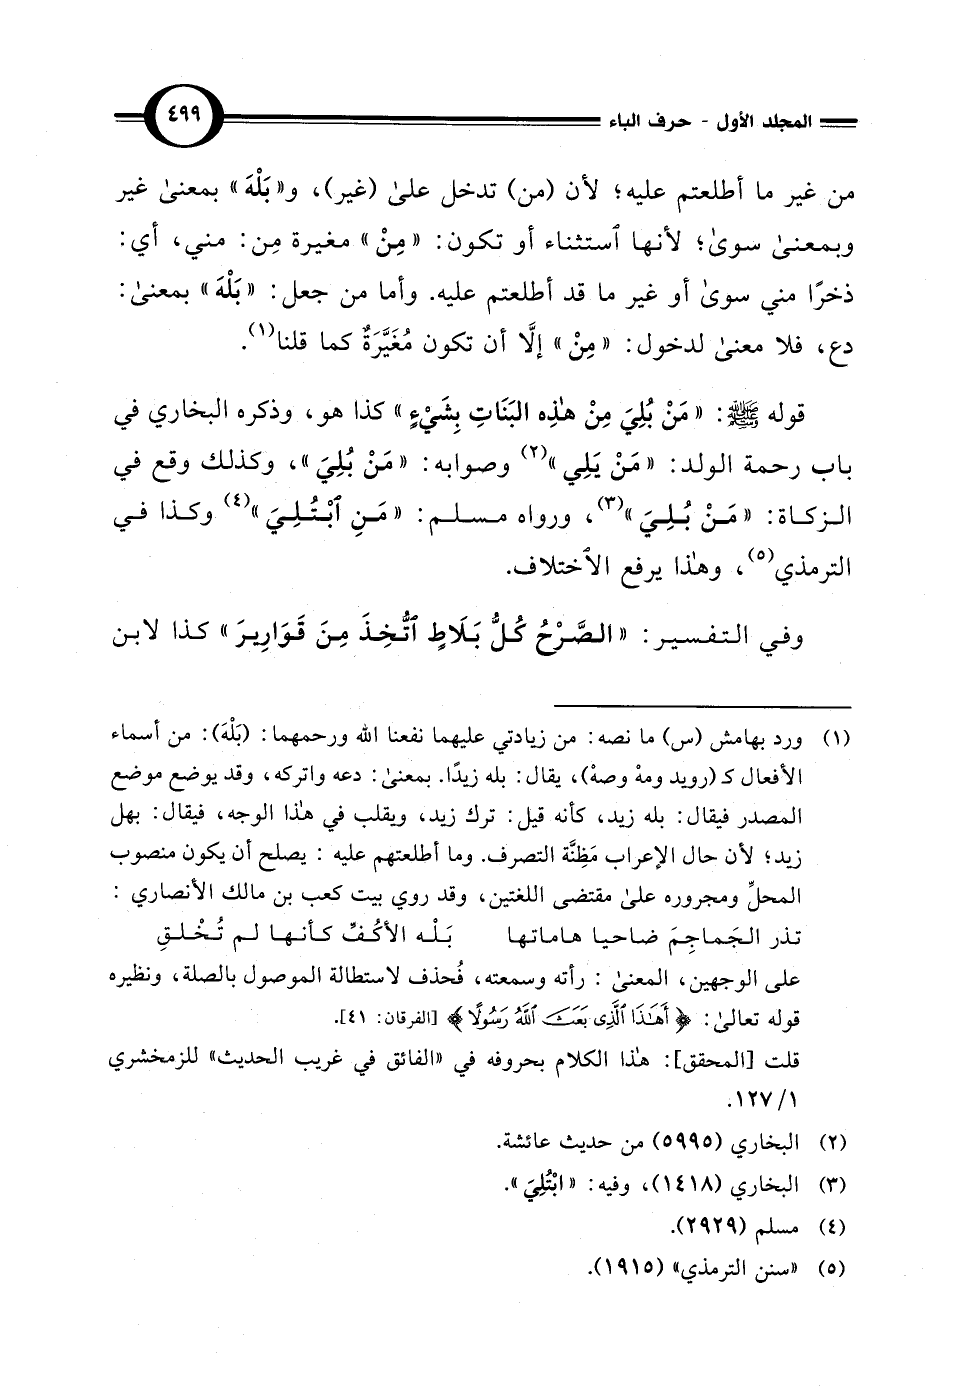 المجلد الأول - حرف الباء ٤٩٩
من غير ما أطلعتم عليه؛ لأن (من) تدخل علىٰ (غير)، و«بَلْهَ» بمعنىٰ غير
وبمعنىٰ سوىٰ؛ لأنها ٱستثناء أو تكون: «مِنْ» مغيرة مِن: مني، أي:
ذخرًا مني سوىٰ أو غير ما قد أطلعتم عليه. وأما من جعل: «بَلْهَ» بمعنىٰ:
دع، فلا معنىٰ لدخول: «مِنْ» إلَّا أن تكون مُغَيَّرَةٌ كما قلنا(١).
قوله ﷺ: «مَنْ بُلِيَ مِنْ هٰذِه البَنَاتِ بِشَيْءٍ» كذا هو، وذكره البخاري في
باب رحمة الولد: «مَنْ يَلِي»(٢) وصوابه: «مَنْ بُلِيَ»، وكذلك وقع في
الزكاة: «مَنْ بُلِيَ»(٣)، ورواه مسلم: «مَنِ ٱبْتُلِيَ»(٤) وكذا في
الترمذي(٥)، وهٰذا يرفع الٱختلاف.
وفي التفسير: «الصَّرْحُ كُلُّ بَلَاطٍ ٱتُّخِذَ مِنَ قَوَارِيرَ» كذا لابن
(١) ورد بهامش (س) ما نصه: من زيادتي عليهما نفعنا الله ورحمهما: (بَلْهَ): من أسماء
الأفعال كـ (رويد ومهْ وصهْ)، يقال: بله زيدًا. بمعنىٰ: دعه واتركه، وقد يوضع موضع
المصدر فيقال: بله زيد، كأنه قيل: ترك زيد، ويقلب في هٰذا الوجه، فيقال: بهل
زيد؛ لأن حال الإعراب مَظِنَّة التصرف. وما أطلعتهم عليه : يصلح أن يكون منصوب
المحلِّ ومجروره علىٰ مقتضى اللغتين، وقد روي بيت كعب بن مالك الأنصاري :
تذر الجَماجِمَ ضاحيا هاماتها بَلْه الأكُفِّ كأنها لم تُخْلَقِ
على الوجهين، المعنىٰ : رأته وسمعته، فُحذف لاستطالة الموصول بالصلة، ونظيره
قوله تعالىٰ: ﴿أَهَٰذَا ٱلَّذِى بَعَثَ ٱللَّهُ رَسُولًا﴾ [الفرقان: ٤١].
قلت [المحقق]: هٰذا الكلام بحروفه في «الفائق في غريب الحديث» للزمخشري
١/ ١٢٧.
(٢) البخاري (٥٩٩٥) من حديث عائشة.
(٣) البخاري (١٤١٨)، وفيه: «ابْتُلِيَ».
(٤) مسلم (٢٩٢٩).
(٥) «سنن الترمذي» (١٩١٥).